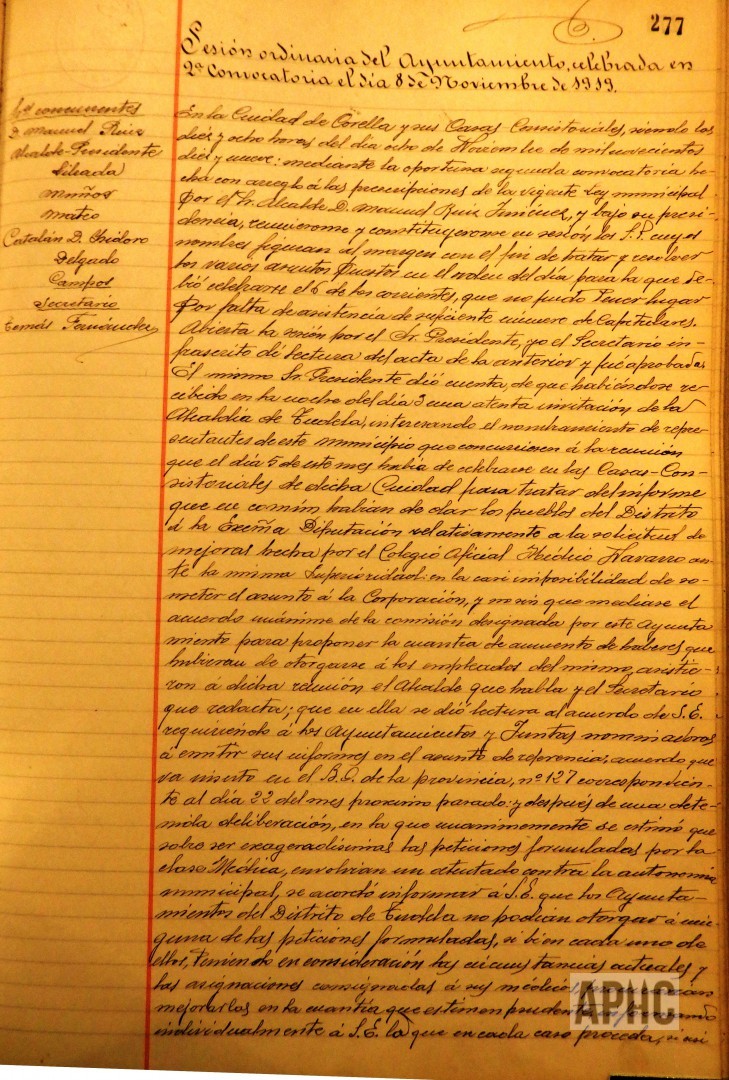 277
Sesión ordinaria del Ayuntamiento, celebrada en
2ª Convocatoria el día 8 de Noviembre de 1919.
Sres concurrentes
D. Manuel Ruiz
Alcalde-Presidente
Muñoz
Mateo
Catalán D. Isidoro
Delgado
Campos
Secretario
Tomás Fernández
En la Ciudad de Corella y sus Casas Consistoriales, siendo las
diez y ocho horas del día ocho de Noviembre de mil novecientos
diez y nueve: mediante la oportuna segunda convocatoria he-
cha con arreglo á las prescripciones de la vigente Ley municipal
por el Sr. Alcalde D. Manuel Ruiz Jiménez, y bajo su presi-
dencia, reunieronse y constituyeronse en sesión los S.S. cuyos
nombres figuran al margen con el fin de tratar y resolver
los varios asuntos puestos en el orden del día para la que de-
bió celebrarse el 6 de los corrientes, que no pudo tener lugar
por falta de asistencia de suficiente número de Capitulares.
Abierta la sesión por el Sr. Presidente, yo el Secretario in-
frascrito dí lectura del acta de la anterior y fué aprobada.
El mismo Sr. Presidente dió cuenta, de que habiéndose re-
cibido en la noche del día 3 una atenta invitación de la
Alcaldia de Tudela, interesando el nombramiento de repre-
sentantes de este municipio que concurriesen á la reunión
que el día 5 de este mes había de celebrarse en las Casas-Con-
sistoriales de dicha Cuidad para tratar del informe
que en común habian de dar los pueblos del Distrito
á la Excma Diputación relativamente a la solicitud de
mejoras hecha por el Colegio Oficial Médico Navarro an-
te la misma Superioridad: en la casi imposibilidad de so-
meter el asunto á la Corporación, y sin que mediase el
acuerdo unánime de la comisión designada por este Ayunta
miento para proponer la cuantia de aumento de haberes que
hubieran de otorgarse á los empleados del mismo, asistie-
ron á dicha reunión el Alcalde que habla y el Secretario
que redacta; que en ella se dió lectura al acuerdo de S.E.
requiriendo á los Ayuntamientos y Juntas nominadoras
á emitir sus informes en el asunto de referencia, acuerdo que
va inserto en el B.O. de la provincia, nº 127 correspondien-
te al día 22 del mes proximo pasado: y después de una dete-
nida deliberación, en la que unanimemente se estimó que
sobre ser exageradisimas las peticiones formuladas por la
clase Médica, envolvian un atentado contra la autonomia
municipal, se acordó informar á S.E. que los Ayunta-
mientos del Distrito de Tudela no podian otorgar á nin-
guna de las peticiones formuladas, si bien cada uno de
ellos, teniendo en consideración las circunstancias actuales y
las asignaciones consignadas á sus médicos
mejorarlas en la cuantía que estimen prudente
individualmente á S.E. lo que en cada caso proceda, si
APHC